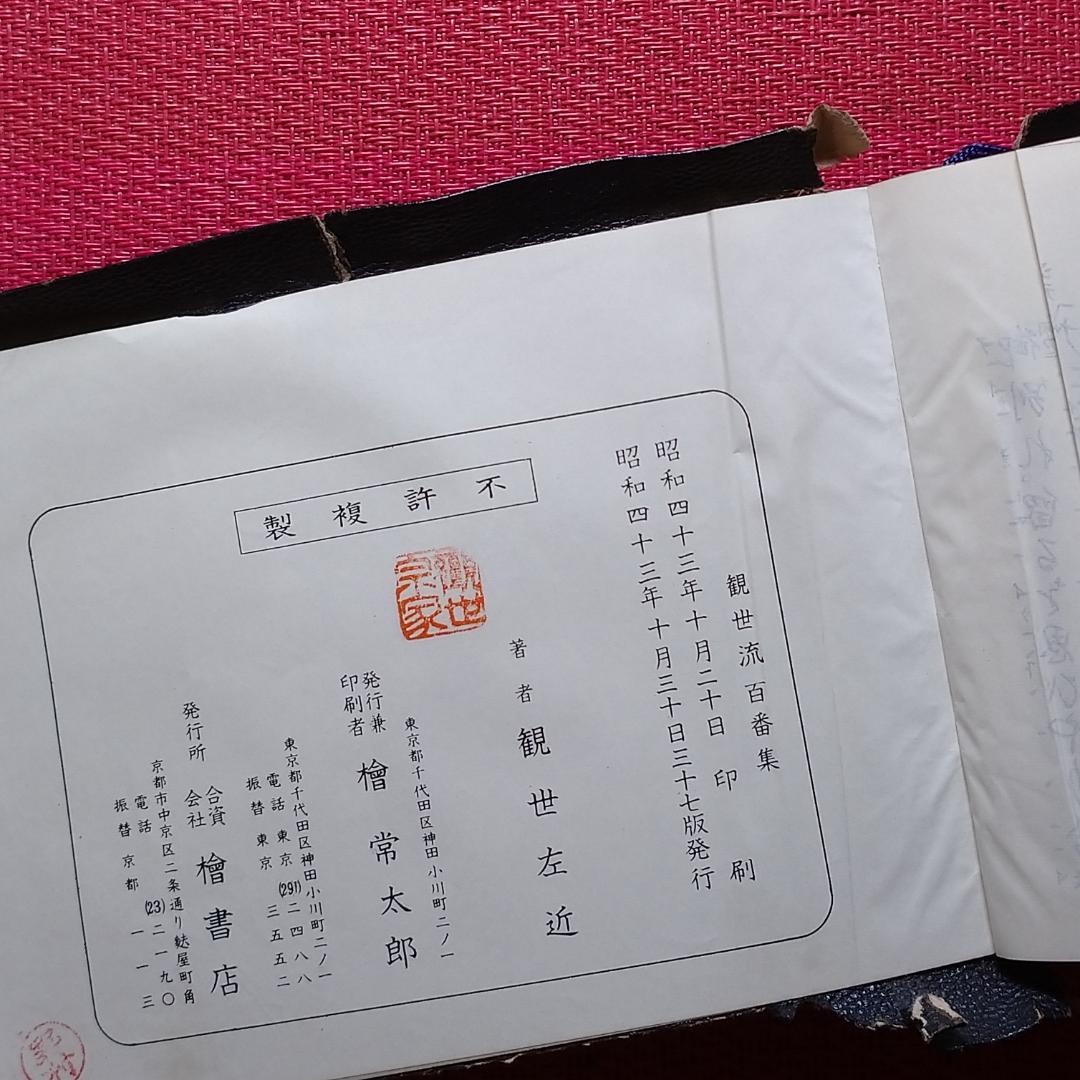 不許複製
観世流百番集
昭和四十三年十月二十日 印刷
昭和四十三年十月三十日三十七版発行
著者 観世左近
観世宗家
東京都千代田区神田小川町二ノ一
発行兼
印刷者 檜常太郎
東京都千代田区神田小川町二ノ一
電話 東京 (291) 二四八八
振替 東京 三五五二
発行所 合資会社 檜書店
京都市中京区二条通り麩屋町角
電話 (23) 二一九〇
振替 京都 一一三